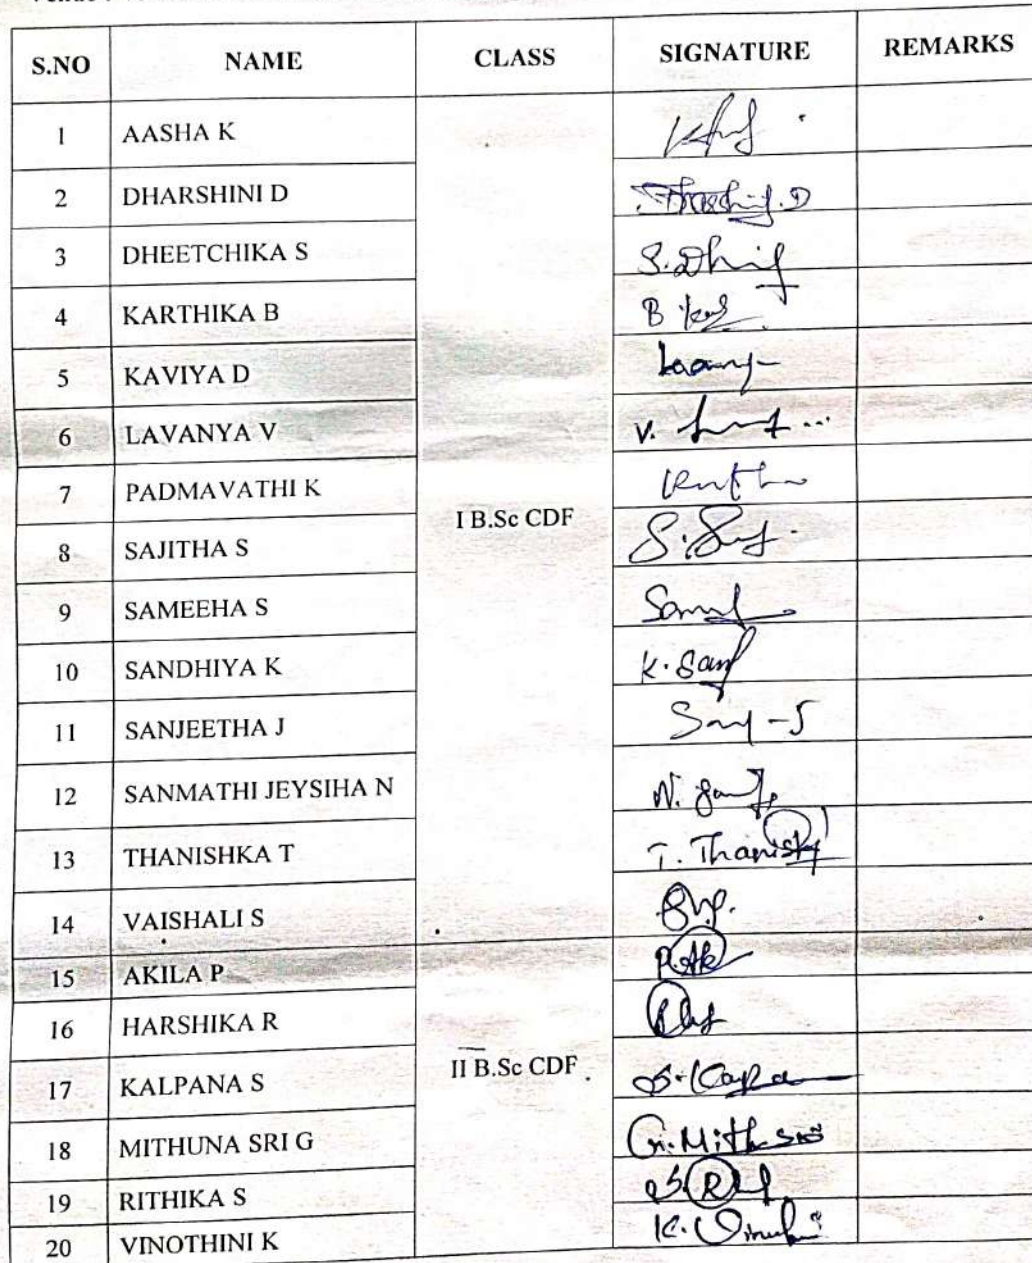 S.NO NAME CLASS SIGNATURE REMARKS
1 AASHA K
2 DHARSHINI D
3 DHEETCHIKA S S.Dh
4 KARTHIKA B B
5 KAVIYA D
6 LAVANYA V V.
7 PADMAVATHI K
I B.Sc CDF
8 SAJITHA S
9 SAMEEHA S
10 SANDHIYA K K. San
11 SANJEETHA J
12 SANMATHI JEYSIHA N N.
13 THANISHKA T T. Thanish
14 VAISHALI S
15 AKILA P P.Ak
16 HARSHIKA R
II B.Sc CDF
17 KALPANA S
18 MITHUNA SRI G G.Mith
19 RITHIKA S S.R
20 VINOTHINI K K.